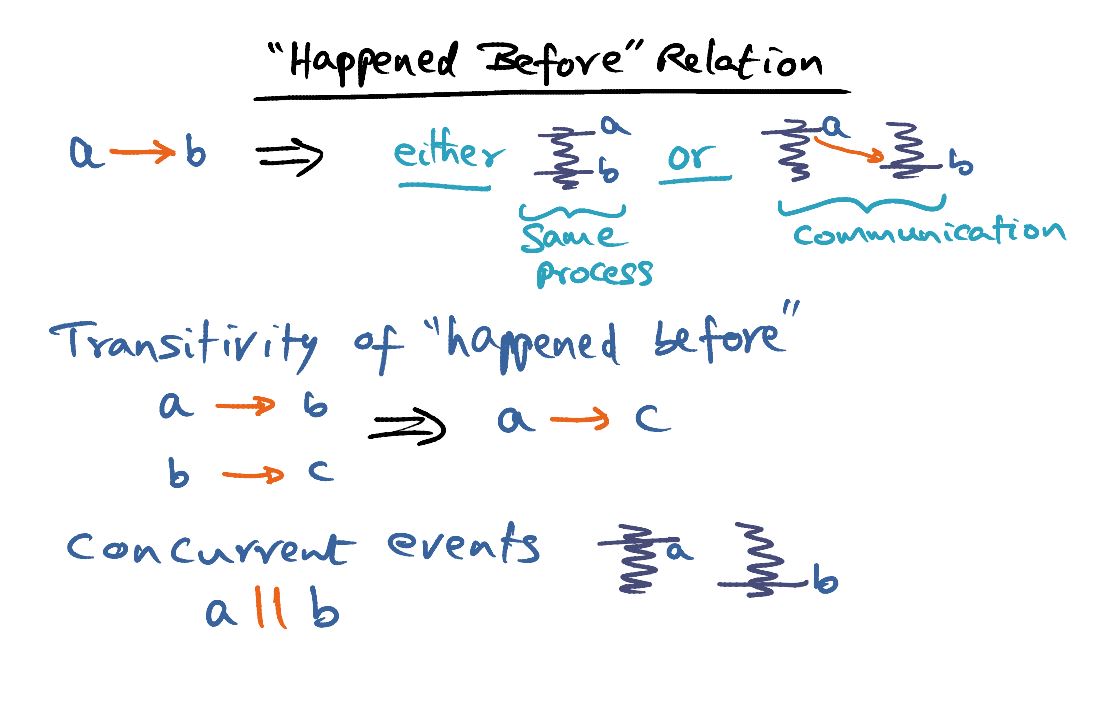 "Happened Before" Relation
a → b ⇒ either a b or a b
same process
communication
Transitivity of "happened before"
a → b
⇒ a → c
b → c
Concurrent events a b
a || b